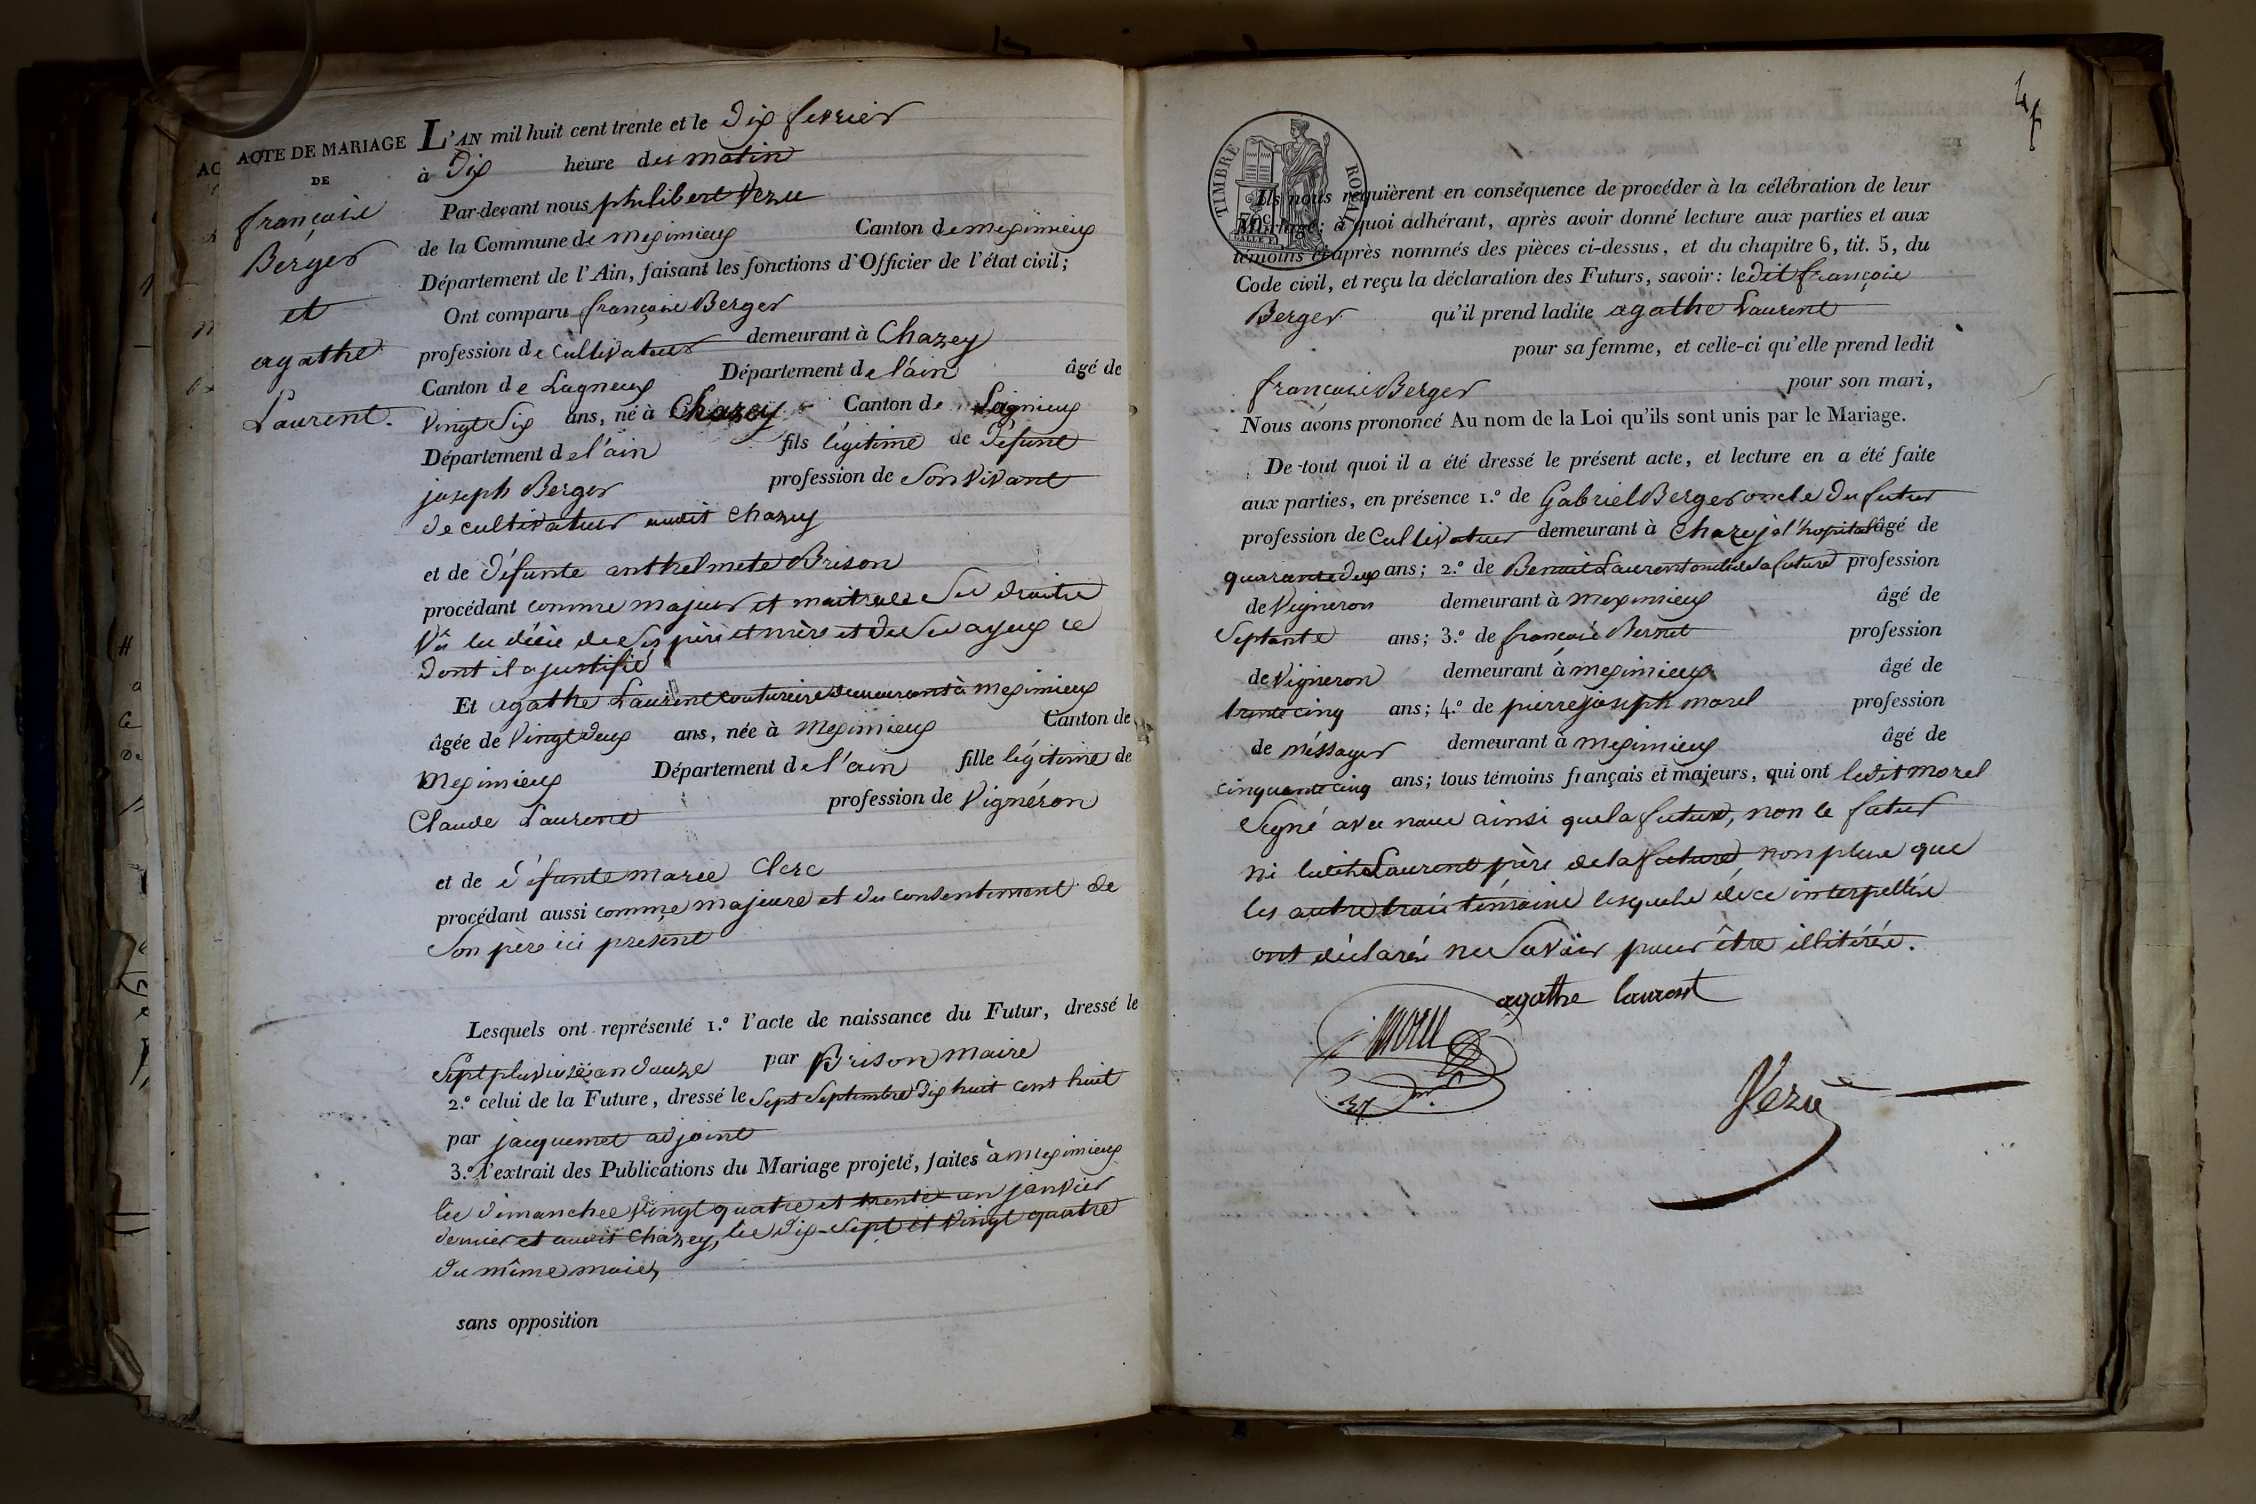 ACTE DE MARIAGE
DE
françois
Berger
et
agathe
Laurent.
L'AN mil huit cent trente et le dix fevrier
à dix heure du matin
Par-devant nous philibert Vezu
de la Commune de meximieux Canton de meximieux
Département de l'Ain, faisant les fonctions d'Officier de l'état civil;
Ont comparu françois Berger
profession de Cultivateur demeurant à Chazey
Canton de Lagneux Département de l'ain âgé de
vingt Six ans, né à Chazey Canton de Lagnieux
Département de l'ain fils légitime de défunt
joseph Berger profession de Son Vivant
de cultivateur audit chazey
et de défunte anthelmete Brison
procédant comme majeur et maitre de Ses droits
Vû les décès de Ses père et mère et de Ses ayeux ce
dont il a justifié
Et agathe Laurent couturière demeurant à meximieux
âgée de Vingt deux ans, née à Meximieux Canton de
Meximieux Département de l'ain fille légitime de
Claude Laurent profession de Vignéron
et de défunte marie Clerc
procédant aussi comme majeure et du consentement de
Son père ici présent
Lesquels ont représenté 1.º l'acte de naissance du Futur, dressé le
Sept pluviose an douze par Brison maire
2.º celui de la Future, dressé le Sept Septembre dix huit cent huit
par jacquemet adjoint
3.º l'extrait des Publications du Mariage projeté, faites à meximieux
les dimanches vingt quatre et trente un janvier
dernier et audit Chazey, les dix-Sept et vingt quatre
du même mois,
sans opposition
TIMBRE ROYAL
Ils nous requièrent en conséquence de procéder à la célébration de leur
Mariage; à quoi adhérant, après avoir donné lecture aux parties et aux
témoins ci-après nommés des pièces ci-dessus, et du chapitre 6, tit. 5, du
Code civil, et reçu la déclaration des Futurs, savoir: le dit françois
Berger qu'il prend ladite agathe Laurent
pour sa femme, et celle-ci qu'elle prend ledit
françois Berger pour son mari,
Nous avons prononcé Au nom de la Loi qu'ils sont unis par le Mariage.
De tout quoi il a été dressé le présent acte, et lecture en a été faite
aux parties, en présence 1.º de Gabriel Berger oncle du futur
profession de Cultivateur demeurant à Chazey à l'hopital âgé de
quarante deux ans; 2.º de Benoit Laurent oncle de la future profession
de Vigneron demeurant à Meximieux âgé de
Septante ans; 3.º de françois Bernet profession
de Vigneron demeurant à meximieux âgé de
trente cinq ans; 4.º de pierre joseph morel profession
de méssager demeurant à meximieux âgé de
cinquante cinq ans; tous témoins français et majeurs, qui ont ledit morel
Signé avec nous ainsi que la future, non le futur
ni ledit Laurent père de la future, non plus que
les autres trois témoins lesquels de ce interpellés
ont déclarés ne Savoir pour être illitérés.
agathe laurent
morel
Vezu